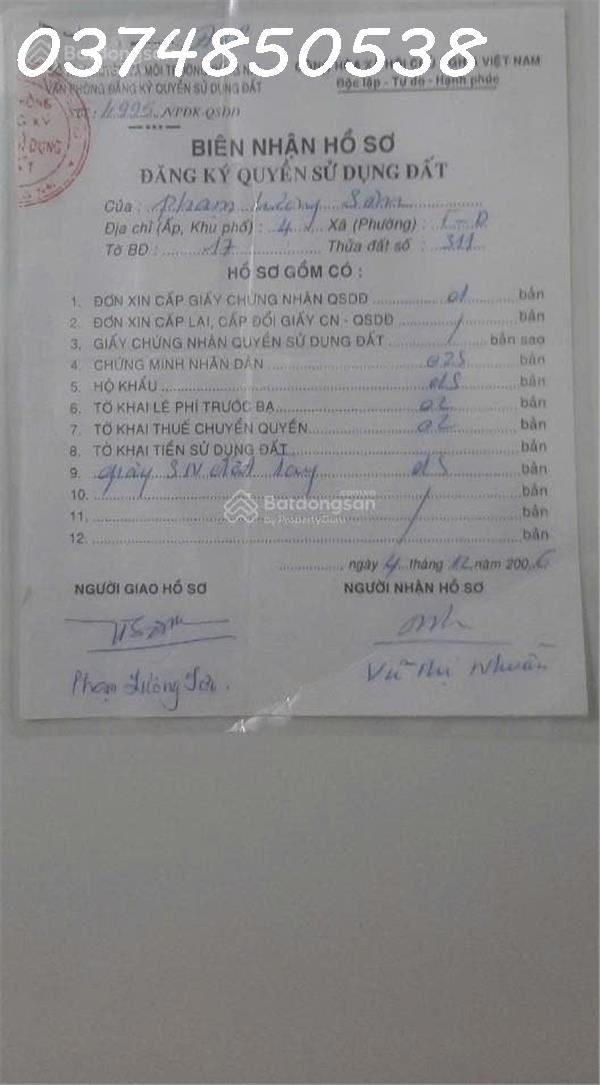 0374850538
VĂN PHÒNG ĐĂNG KÝ QUYỀN SỬ DỤNG ĐẤT
VIỆT NAM
Độc lập - Tự do - Hạnh phúc
Số : 4995 /VPĐK-QSDĐ
BIÊN NHẬN HỒ SƠ
ĐĂNG KÝ QUYỀN SỬ DỤNG ĐẤT
Của : Phạm
Địa chỉ (Ấp, Khu phố) : 4 Xã (Phường) :
Tờ BĐ : 17 Thửa đất số : 311
HỒ SƠ GỒM CÓ :
1. ĐƠN XIN CẤP GIẤY CHỨNG NHẬN QSDĐ 01 bản
2. ĐƠN XIN CẤP LẠI, CẤP ĐỔI GIẤY CN - QSDĐ / bản
3. GIẤY CHỨNG NHẬN QUYỀN SỬ DỤNG ĐẤT / bản sao
4. CHỨNG MINH NHÂN DÂN 02S bản
5. HỘ KHẨU 01S bản
6. TỜ KHAI LỆ PHÍ TRƯỚC BẠ 02 bản
7. TỜ KHAI THUẾ CHUYỂN QUYỀN 02 bản
8. TỜ KHAI TIỀN SỬ DỤNG ĐẤT bản
9. giấy bản
10. bản
11. / bản
12. bản
Batdongsan
.com.vn
by PropertyGuru
ngày 4 tháng 12 năm 2006
NGƯỜI GIAO HỒ SƠ NGƯỜI NHẬN HỒ SƠ
Phạm Vũ Thị Nhuần